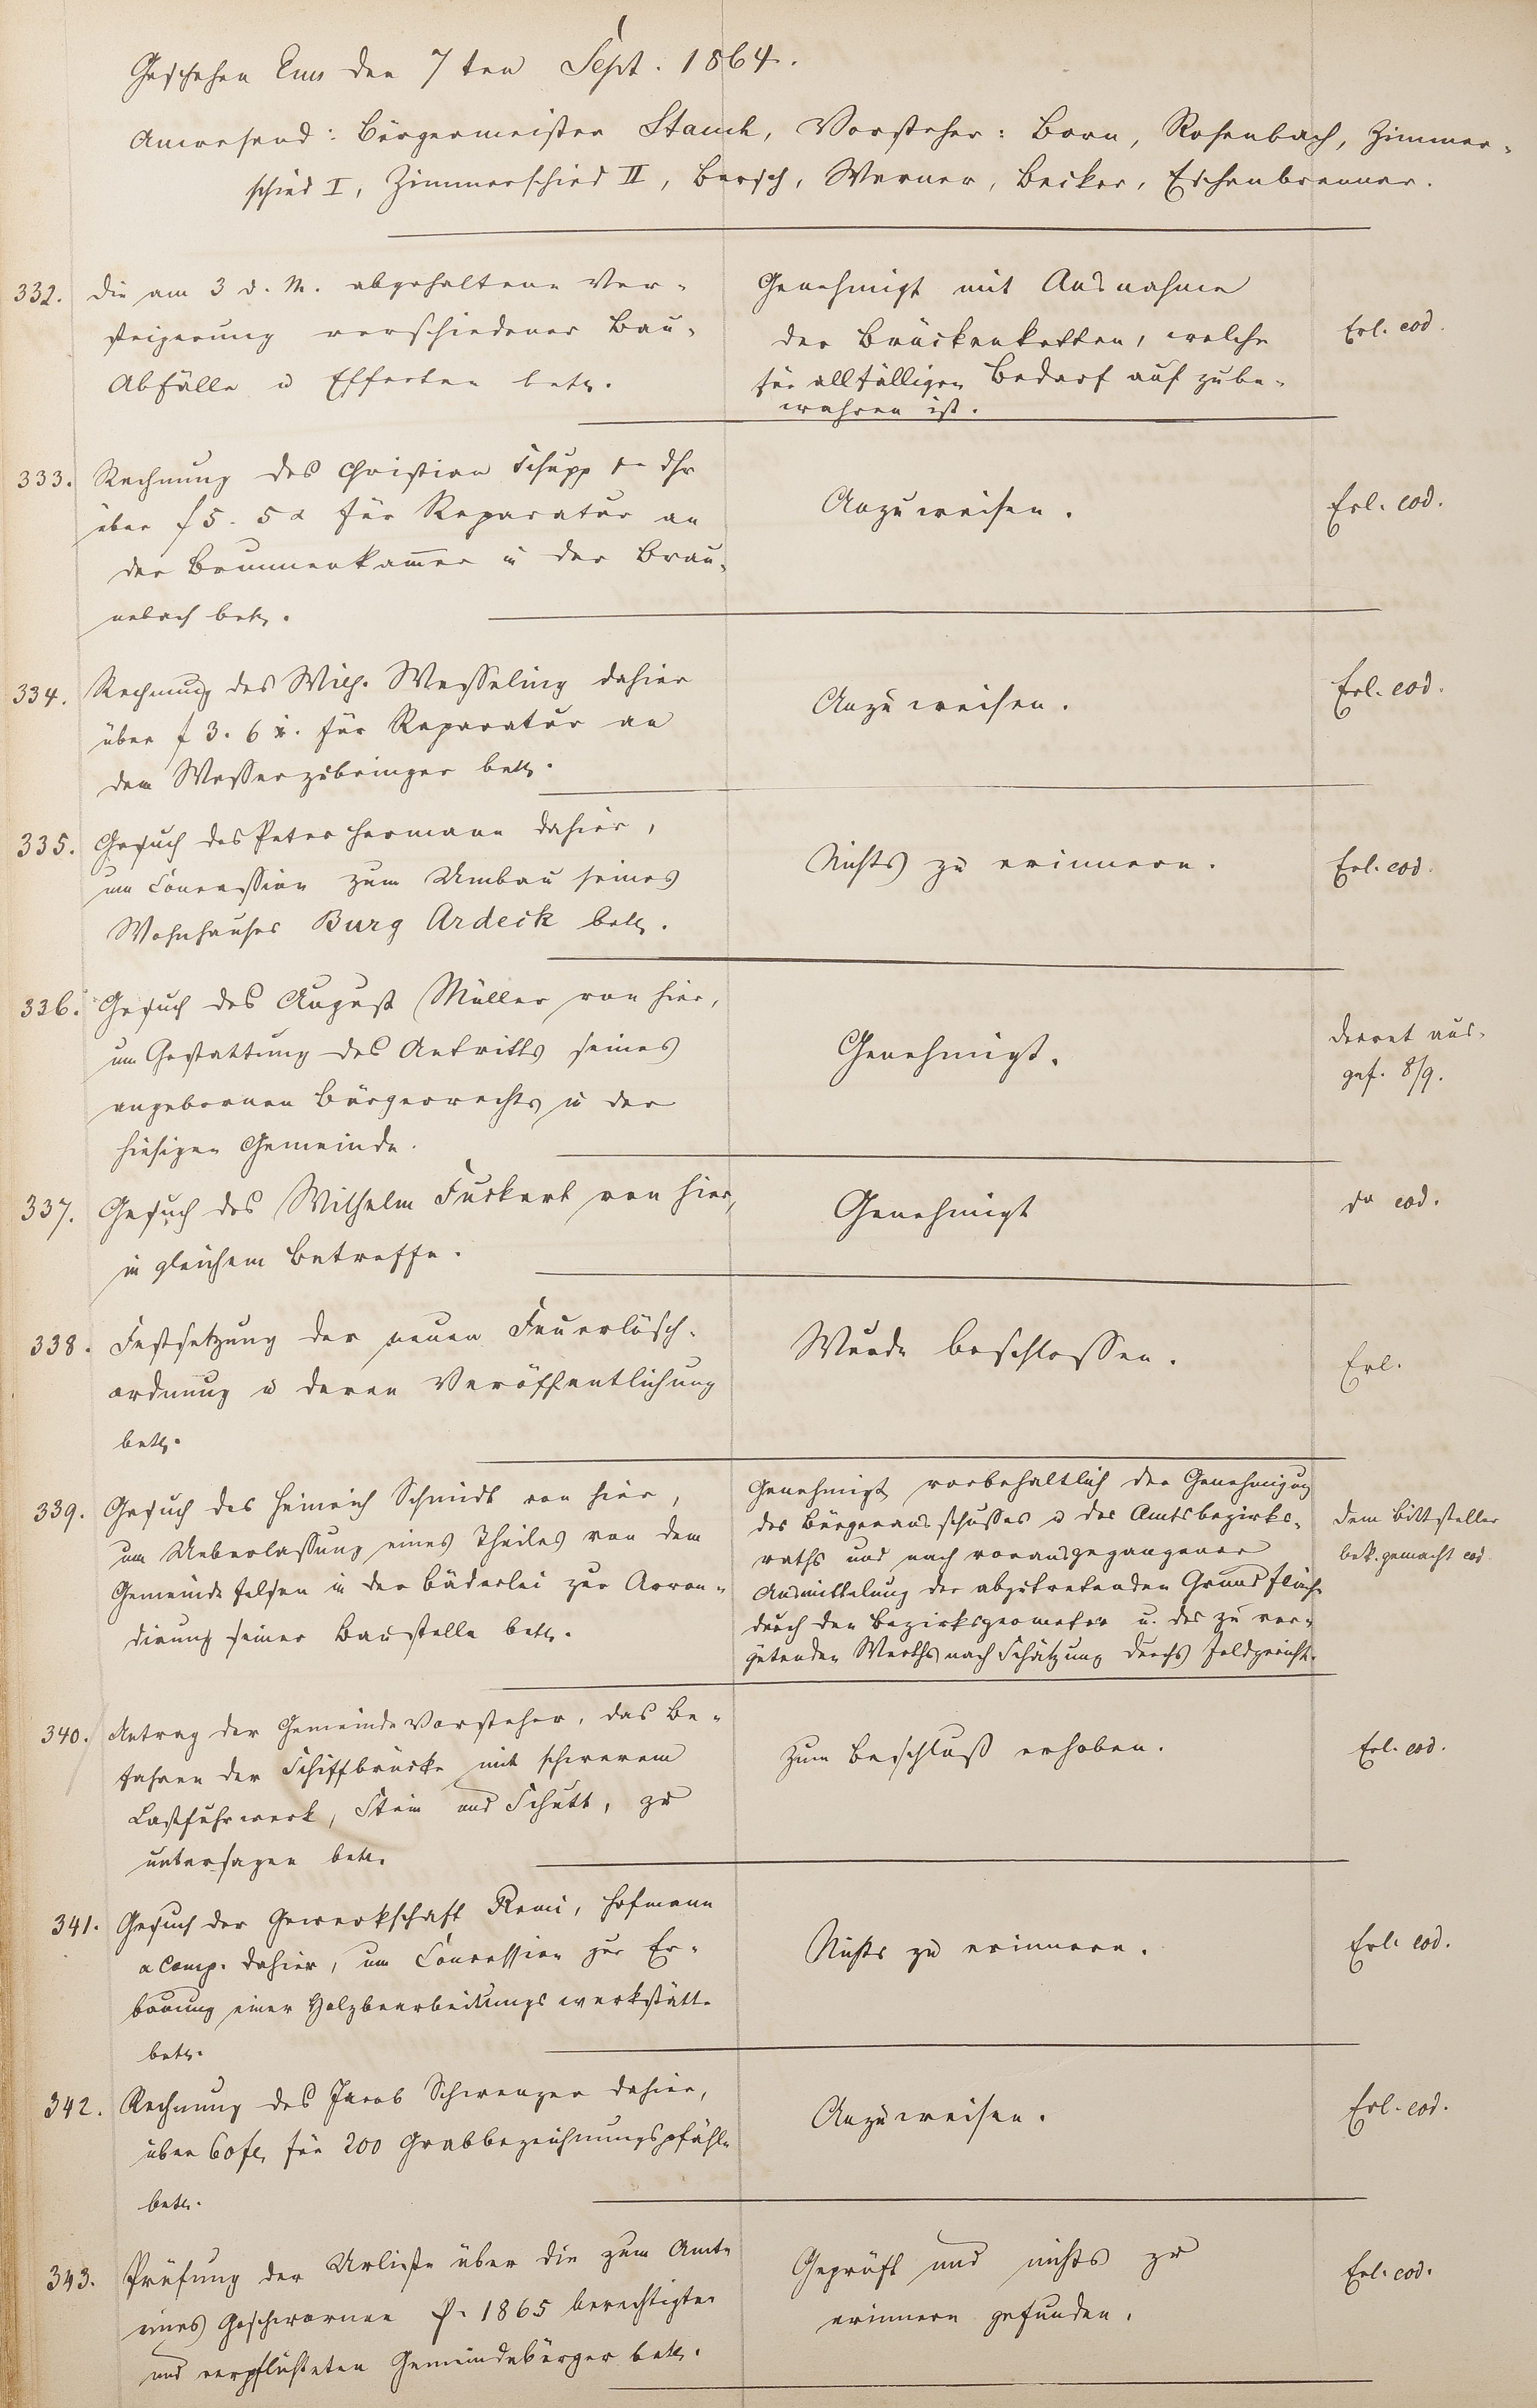 Geschehen Ems den 7ten Sept. 1864.
Anwesend: Bürgermeister Stauch, Vorsteher: Born, Rosenbach, Zimmer-
schied I, Zimmerschied II, Bersch, Werner, Becker, Eschenbrenner.
332. die am 3 d. M. abgehaltene Ver-
steigerung verschiedener Bau-
Abfälle u Effecten betr.
Genehmigt mit Ausnahme
der Brückenketten, welche
für allfälligen Bedarf auf zube-
wahren ist.
Erl. eod.
333. Rechnung des Christian Schupp
über f 5. 5 x für Reparatur an
der Brunnenkammer in der Brau-
nebach betr.
Anzuweisen.
Erl. eod.
334. Rechnung des Wilh. Wesseling dahier
über f 3. 6 x. für Reparatur an
dem Wasserzubringer betr.
Anzuweisen.
Erl. eod.
335. Gesuch des Peter Hermann dahier,
um Concession zum Umbau seines
Wohnhauses Burg Ardeck betr.
Nichts zu erinnern.
Erl. eod.
336. Gesuch des August Müller von hier,
um Gestattung des Antritts seines
angebornen Bürgerrechts in der
hiesigen Gemeinde.
Genehmigt.
Decret aus-
gef. 8/9.
337. Gesuch des Wilhelm Fuckert von hier,
in gleichem Betreffe.
Genehmigt
do eod.
338. Festsetzung der neuen Feuerlösch-
ordnung u deren Veröffentlichung
betr.
Wurde beschlossen.
Erl.
339. Gesuch des Heinrich Schmidt von hier,
um Ueberlassung eines Theiles von dem
Gemeindefelsen in der Bäderlei zur Arron-
dirung seiner Baustelle betr.
Genehmigt vorbehaltlich der Genehmigung
des Bürgerausschusses u des Amtsbezirks-
raths und nach vorausgegangener
Ausmittelung der abzutretenden Grundfläche
durch den Bezirksgeometer u. des zu ver-
gütenden Werths nach Schätzung durchs Feldgericht.
Dem Bittsteller
bek. gemacht eod.
340. Antrag der Gemeindevorsteher, das Be-
fahren der Schiffbrücke mit schwerem
Lastfuhrwerk, Stein und Schutt, zu
untersagen betr.
Zum Beschluß erhoben.
Erl. eod.
341. Gesuch der Gewerkschaft Remi, Hofmann
a Comp. dahier, um Concession zur Er-
bauung einer Holzbearbeitungswerkstätte
betr.
Nichts zu erinnern.
Erl. eod.
342. Rechnung des Jacob Schwenzer dahier,
über 60 fl. für 200 Grabbezeichnungspfähle
betr.
Anzuweisen.
Erl. eod.
343. Prüfung der Urliste über die zum Amte
eines Geschwornen p. 1865 berechtigten
und verpflichteten Gemeindebürger betr.
Geprüft und nichts zu
erinnern gefunden.
Erl. eod.